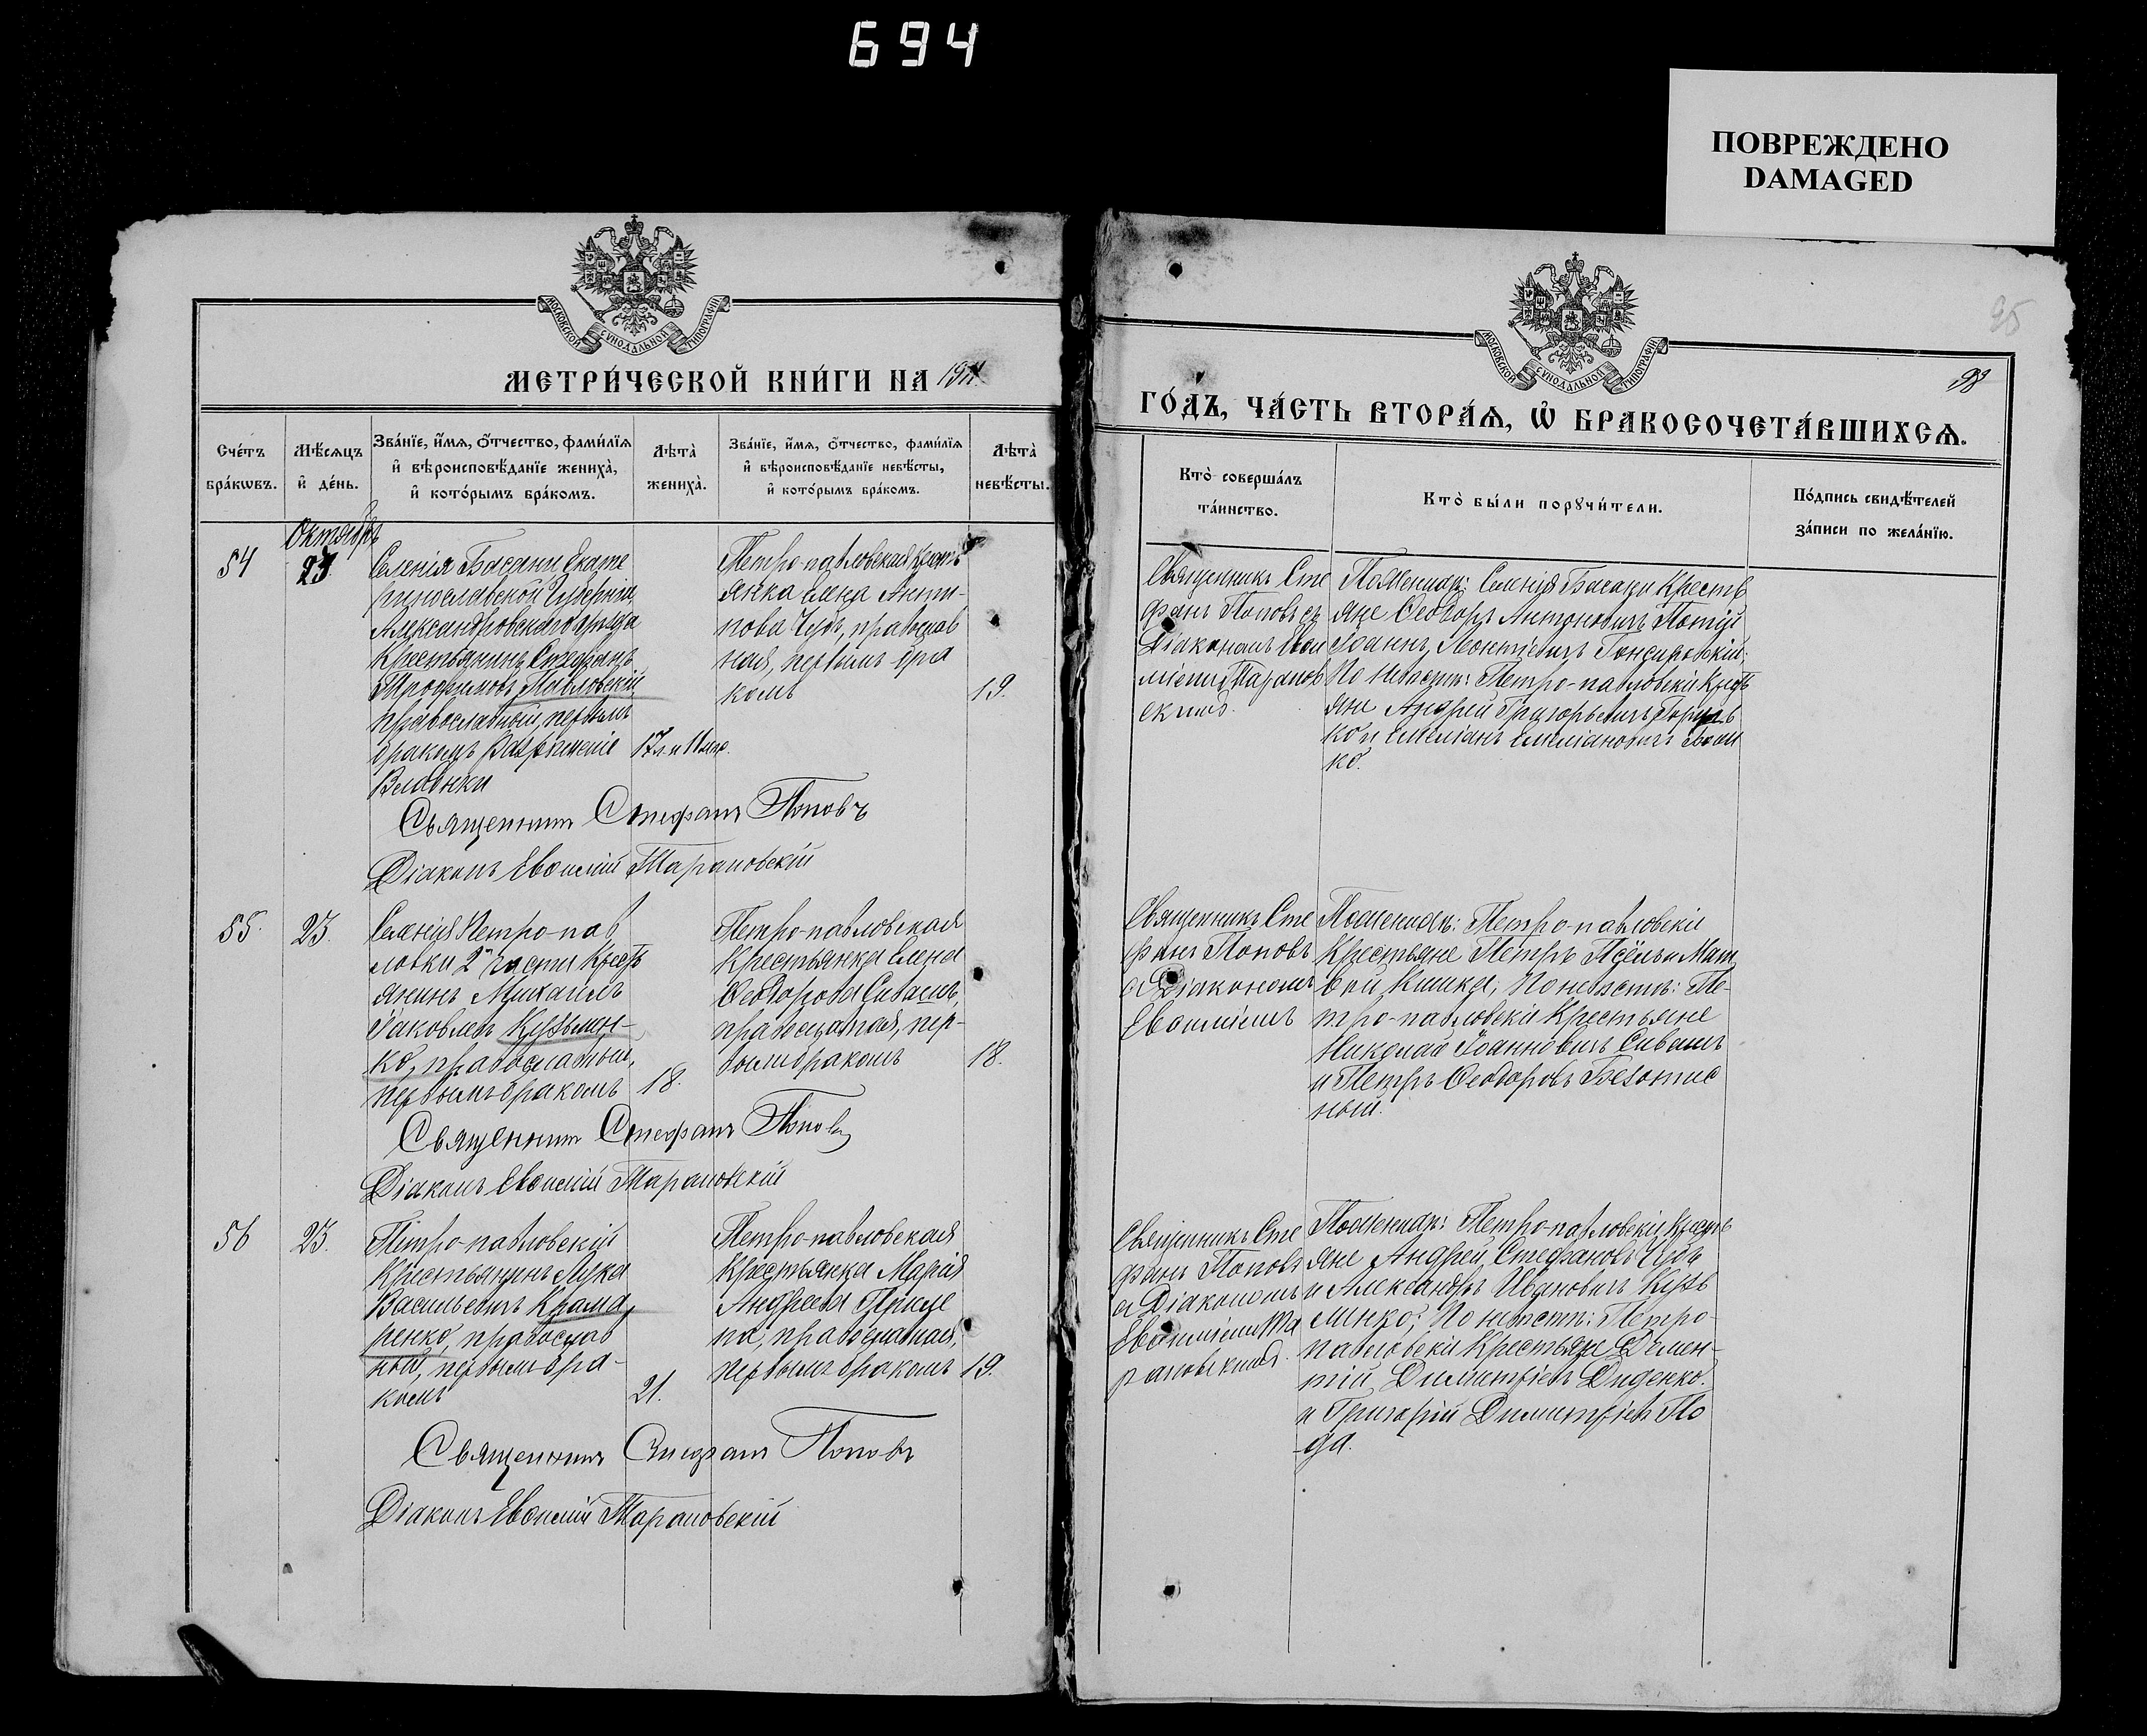 694
ПОВРЕЖДЕНО
DAMAGED
МОСКОВСКОЙ СѴНОДАЛЬНОЙ ТИПОГРАФІИ
МЕТРИ́ЧЕСКОЙ КНИ́ГИ НА 1911
Сче́тъ бра́кѡвъ.
Мѣ́сяцъ и҆ де́нь.
Зва́нїе, и҆́мѧ, ѻ҆́тчество, фами́лїѧ
и҆ вѣроисповѣ́данїе жениха̀,
и҆ кото́рымъ бра́комъ.
Лѣта̀
жениха̀.
Зва́нїе, и҆́мѧ, ѻ҆́тчество, фами́лїѧ
и҆ вѣроисповѣ́данїе невѣ́сты,
и҆ кото́рымъ бра́комъ.
Лѣта̀
невѣ́сты.
54
Октябрь
23.
Селенія Басани Екате
ринославской Губерніи,
Александровскаго уѣзда
Крестьянинъ Стефанъ
Трофимовъ Павловскій
православный, первымъ
бракомъ Разрѣшеніе
Владыки
17 л. и 11 мѣс.
Петро-павловская Крестъ
янка Елена Анти-
пова Чубъ, православ
ная, первымъ бра
комъ
19.
Священникъ Стефанъ Поповъ
Діаконъ Евѳимій Тарановскій
55.
23.
Селенія Петро-пав
ловки 2й части Кресть
янинъ Михаилъ
Іаковлевъ Кузьмен-
ко, православный,
первымъ бракомъ
18.
Петро-павловская
Крестьянка Елена
Ѳеодорова Сивашъ,
православная, пер-
вымъ бракомъ
18.
Священникъ Стефанъ Поповъ
Діаконъ Евѳимій Тарановскій
56
23.
Петро-павловскій
Крестьянинъ Лука
Васильевичъ Крама
ренко, православ
ный, первымъ бра-
комъ
21.
Петро-павловская
Крестьянка Марія
Андреева
православная,
первымъ бракомъ
19.
Священникъ Стефанъ Поповъ
Діаконъ Евѳимій Тарановскій
МОСКОВСКОЙ СѴНОДАЛЬНОЙ ТИПОГРАФІИ
95
98
ГО́ДЪ, ЧА́СТЬ ВТОРА́Ѧ, Ѡ҆ БРАКОСОЧЕТА́ВШИХСѦ.
Кто̀ соверша́лъ
та́инство.
Кто̀ бы́ли порꙋчи́тели.
По́дпись свидѣ́телей
за́писи по жела́нїю.
Священникъ Сте
фанъ Поповъ съ
Діакономъ Евѳи
міемъ Таранов
скимъ.
По женихѣ: Селенія Басани Кресть
яне Ѳеодоръ Антоновичъ
Іоаннъ Леонтіевичъ
По невѣстѣ: Петро-павловскіе Кресть
яне Андрей Григорьевичъ
ко и Емеліанъ Емеліановичъ
ко.
Священникъ Сте
фанъ Поповъ
съ Діакономъ
Евѳиміемъ
По женихѣ: Петро-павловскіе
Крестьяне Петръ Псёлъ и Мат
вей Кишка; По невѣстѣ: Пе-
тро-павловскіе Крестьяне
Николай Іоанновичъ Сивашъ
и Петръ Ѳеодоровъ
ный.
Священникъ Сте
фанъ Поповъ
съ Діакономъ
Евѳиміемъ Та
рановскимъ.
По женихѣ: Петро-павловскіе Кресть
яне Андрей Стефановъ Чубъ
и Александръ Ивановичъ Кузь
менко; По невѣстѣ: Петро-
павловскіе Крестьяне Демен-
тій Димитріевъ Диденко
и Григорій Димитріевъ